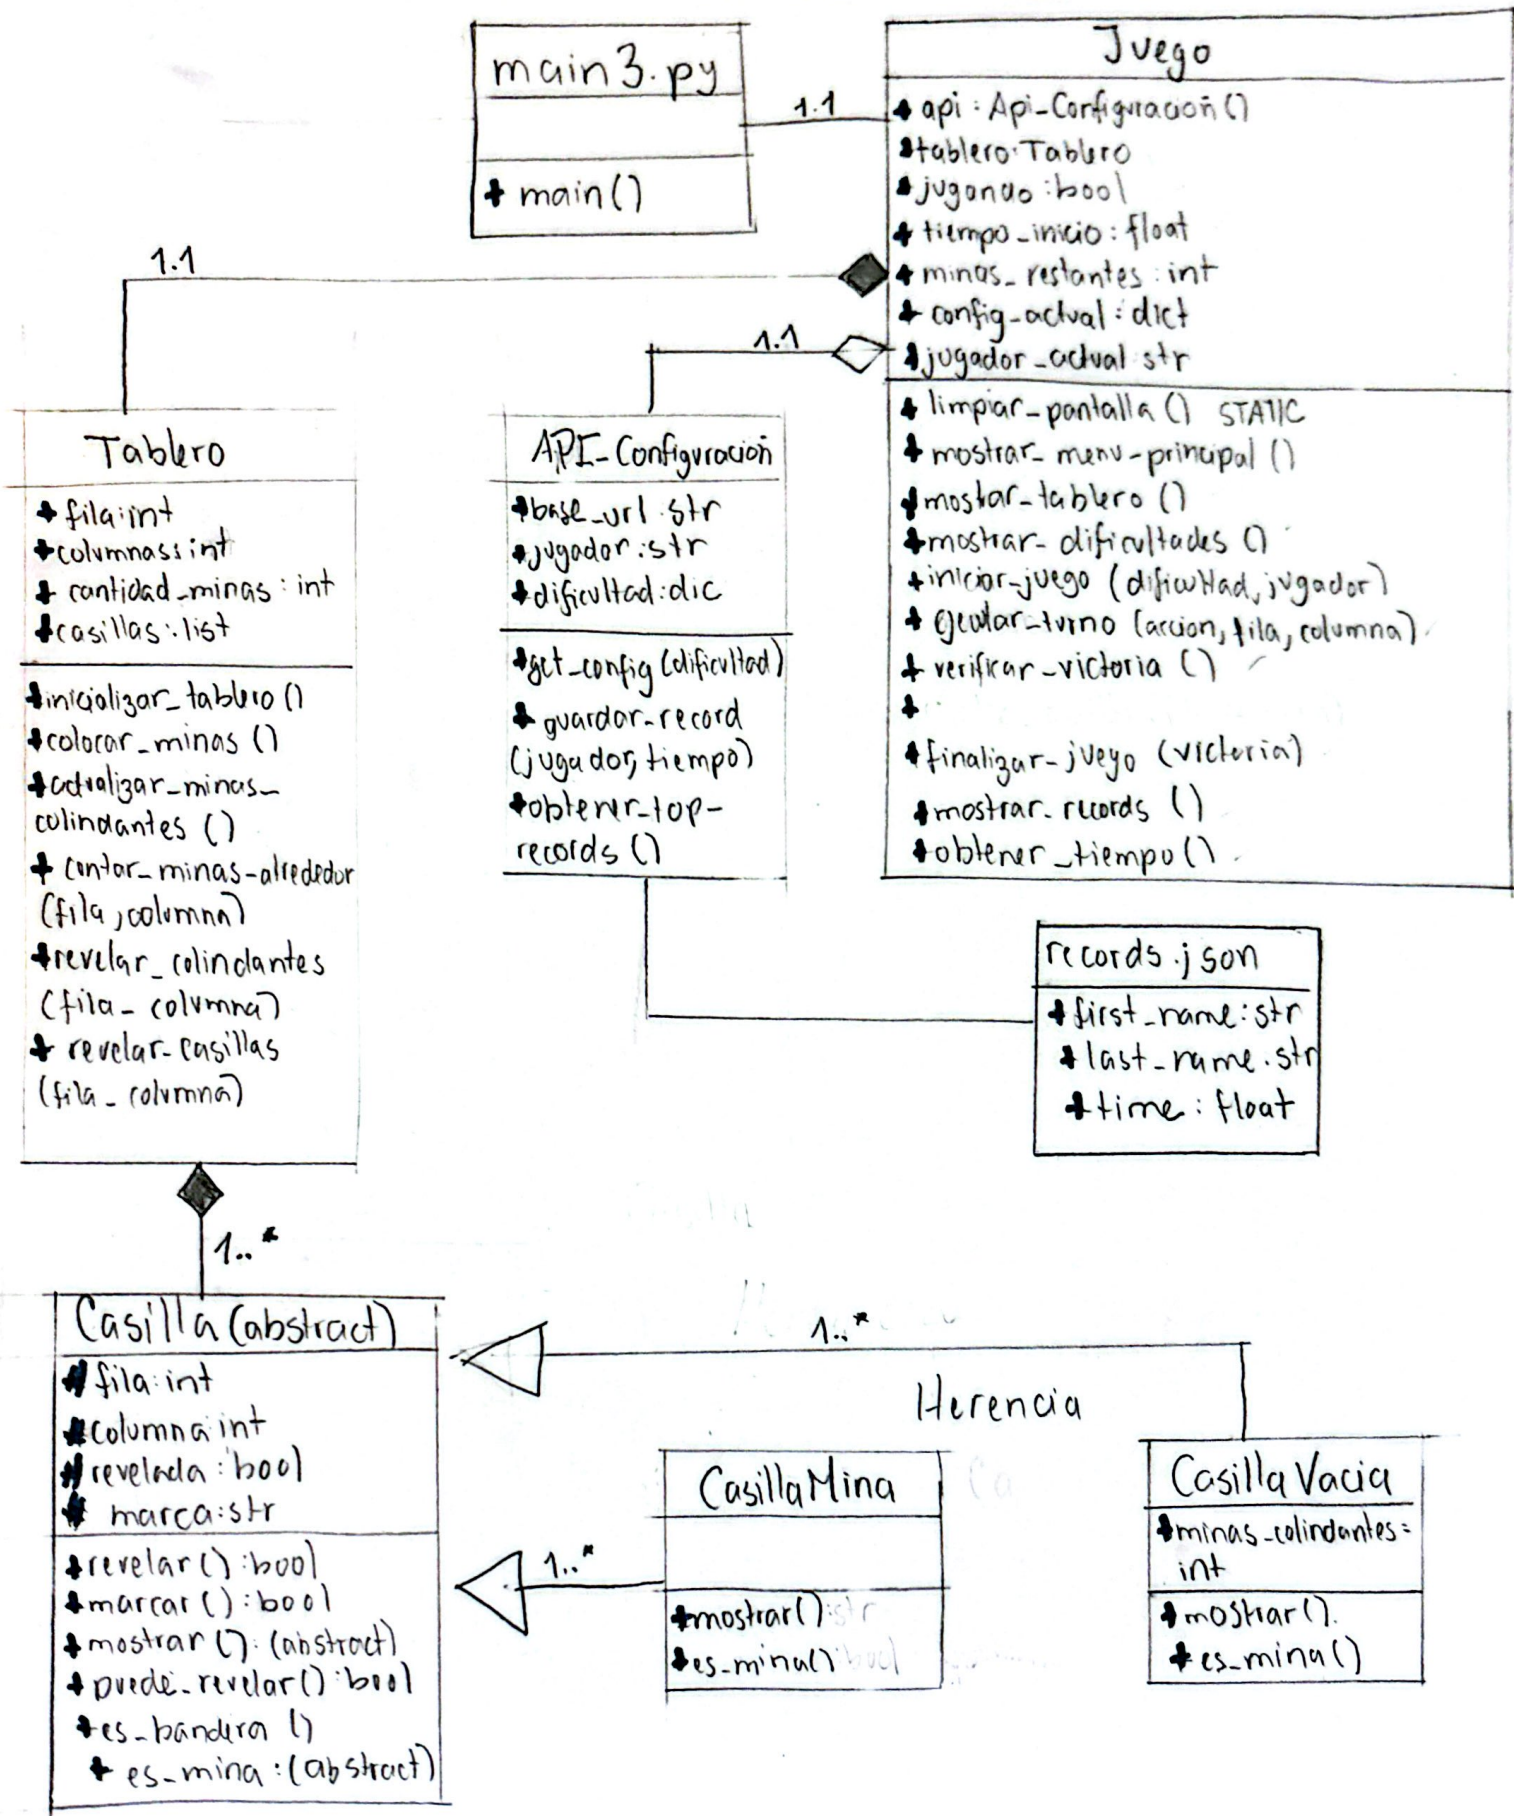 main3.py
+ main()
1.1
Juego
+ api : Api_Configuración()
+tablero:Tablero
+jugando :bool
+ tiempo_inicio : float
+ minas_restantes : int
+ config_actual : dict
+jugador_actual str
+ limpiar_pantalla () STATIC
+ mostrar_menu-principal ()
+mostar_tablero ()
+mostrar_dificultades ()
+iniciar_juego (dificultad, jugador)
+ ejecutar_turno (accion, fila, columna)
+ verificar_victoria ()
+
+finalizar_juego (victoria)
+mostrar_records ()
+obtener_tiempo()
1.1
1.1
Tablero
+ fila:int
+columnas:int
+ cantidad_minas : int
+casillas : list
+inicializar_tablero ()
+colocar_minas ()
+actualizar_minas_
colindantes ()
+ contar_minas-alrededor
(fila, columna)
+revelar_colindantes
(fila_columna)
+ revelar_casillas
(fila_columna)
API_Configuración
+base_url:str
+jugador:str
+dificultad:dic
+get_config(dificultad)
+ guardar_record
(jugador, tiempo)
+obtener_top-
records ()
records.json
+first_name:str
+last_name.str
+time: float
1..*
Casilla (abstract)
# fila:int
#columna:int
# revelada : bool
# marca:str
+revelar():bool
+marcar():bool
+mostrar():(abstract)
+puede_revelar():bool
+es_bandera ()
+ es_mina :(abstract)
1..*
Herencia
1..*
CasillaMina
+mostrar():str
+es_mina():bool
CasillaVacia
+minas_colindantes=
int
+mostrar().
+es_mina()